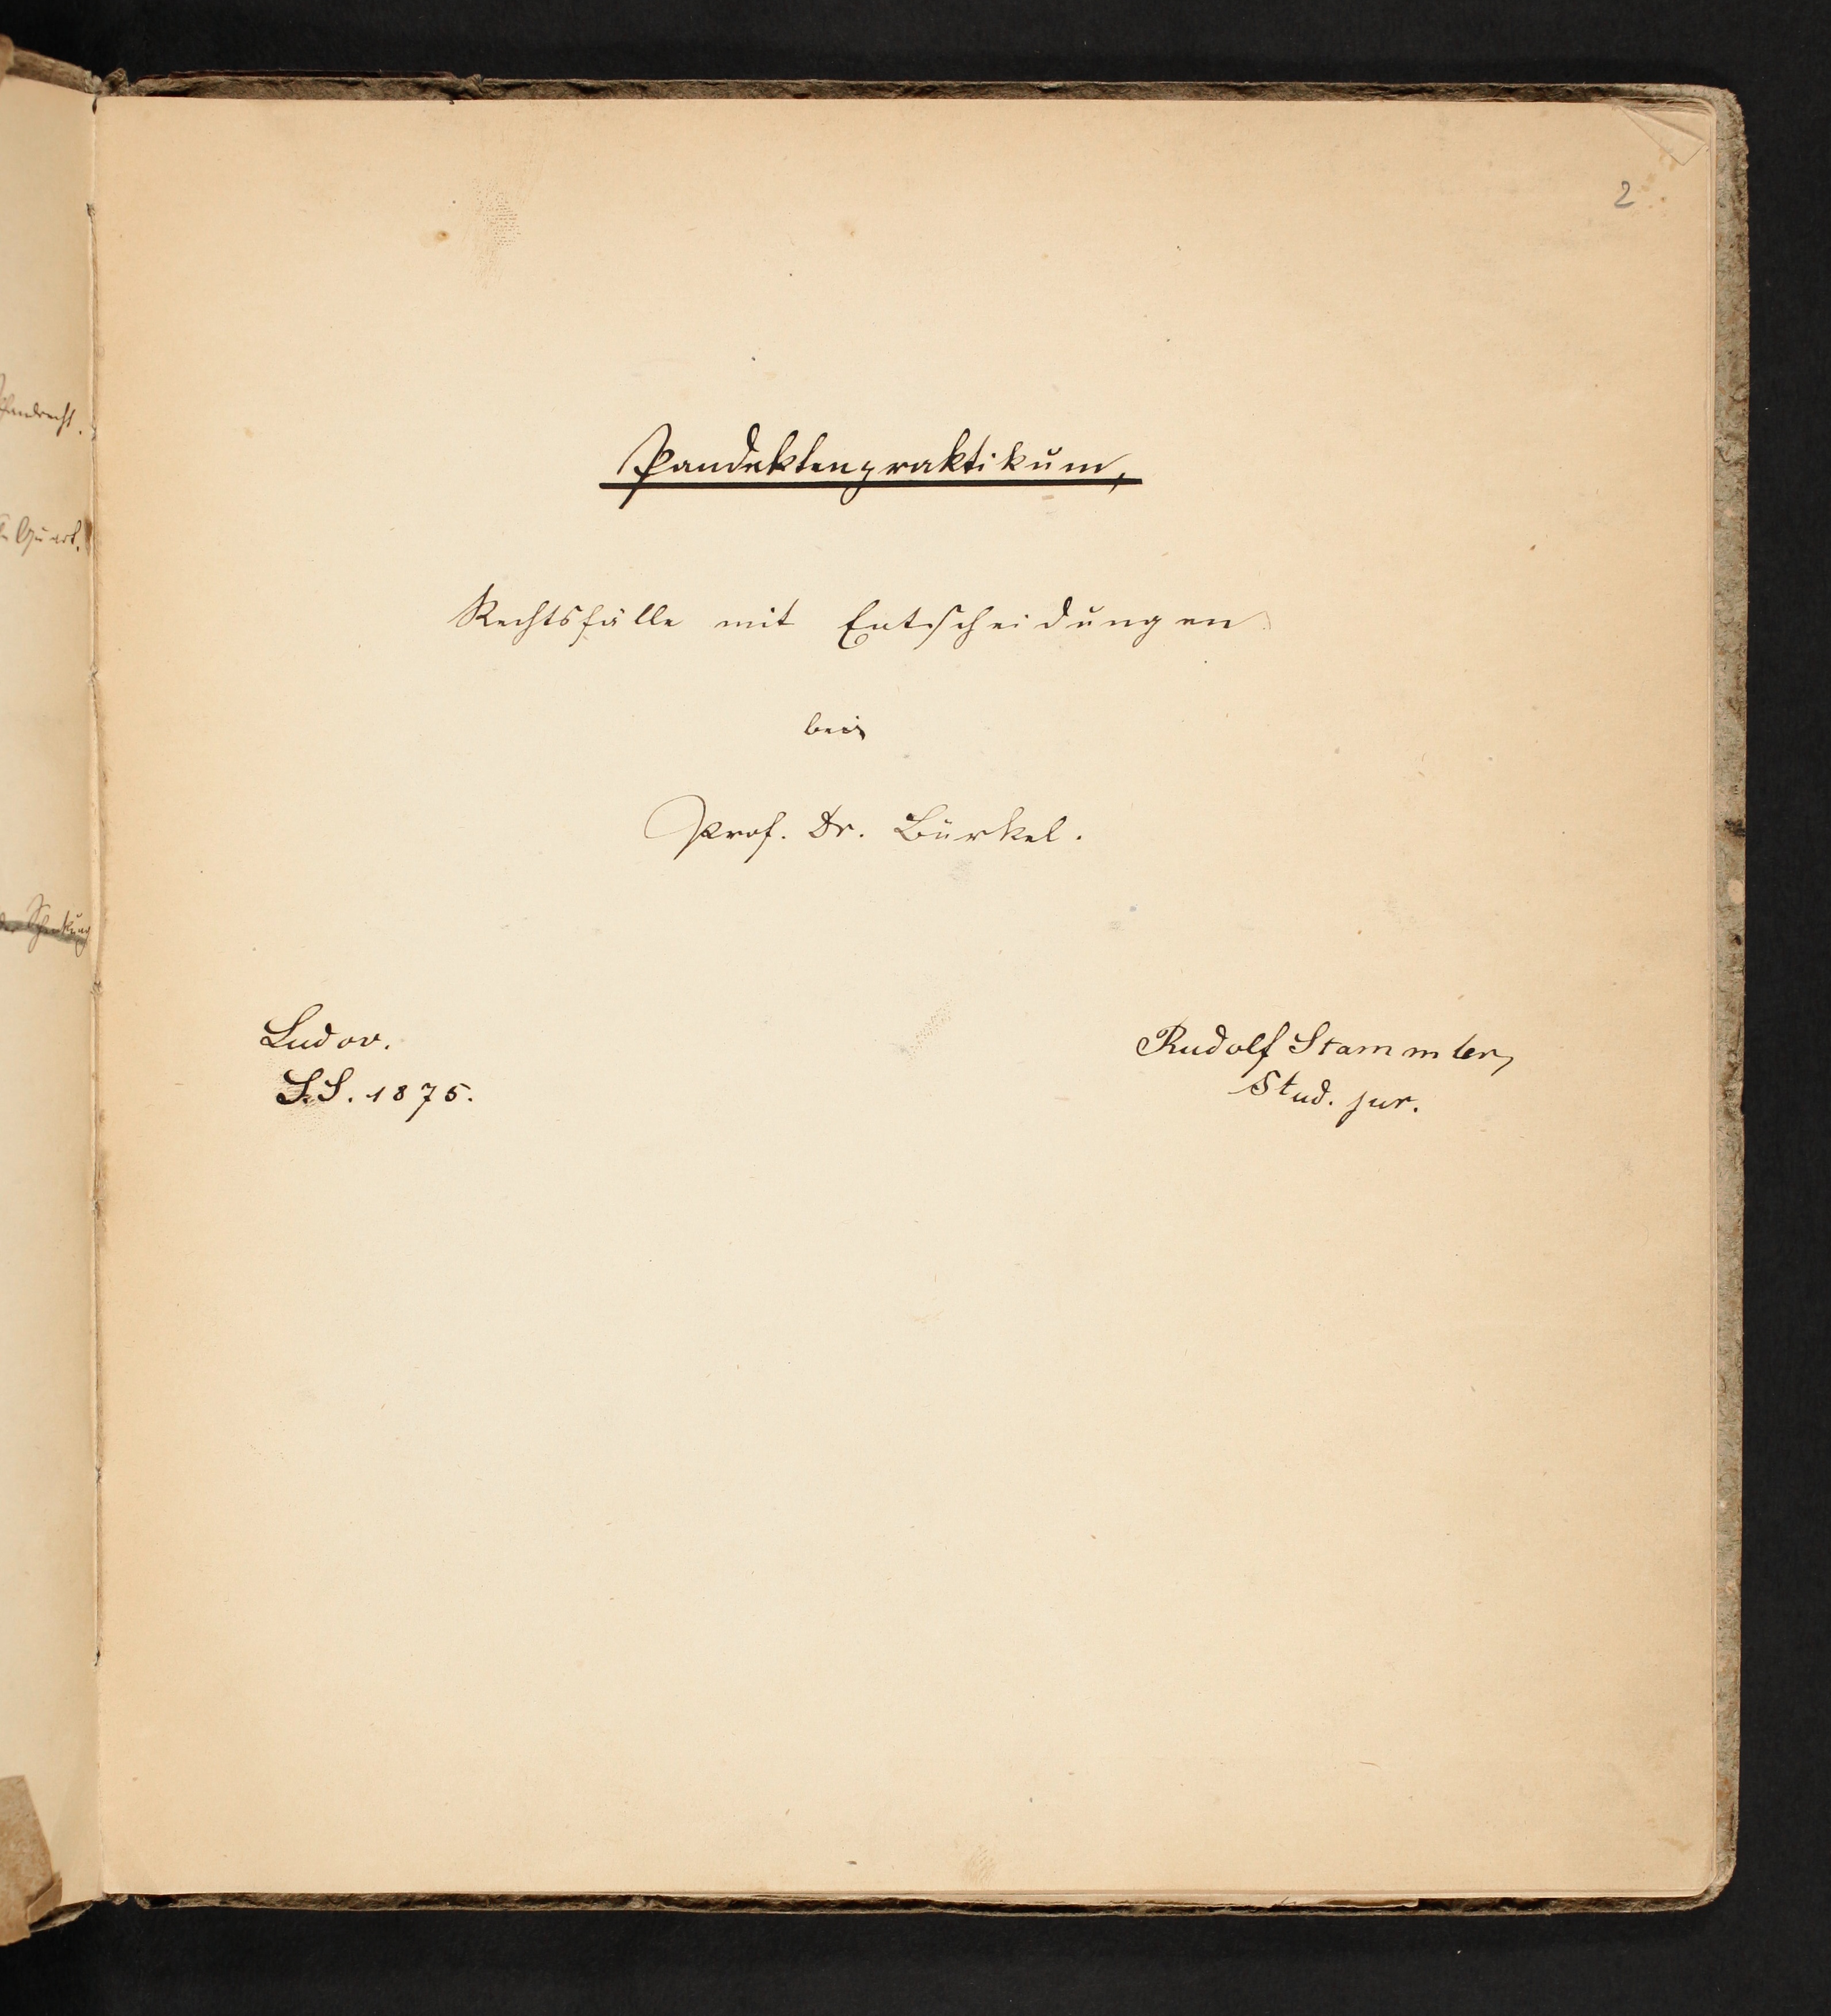 2
Pandektenpraktikum,
Rechtsfälle mit Entscheidungen
bei
Prof. Dr. Bürkel.
Ludov.
S.S. 1875.
Rudolf Stammler,
Stud. jur.